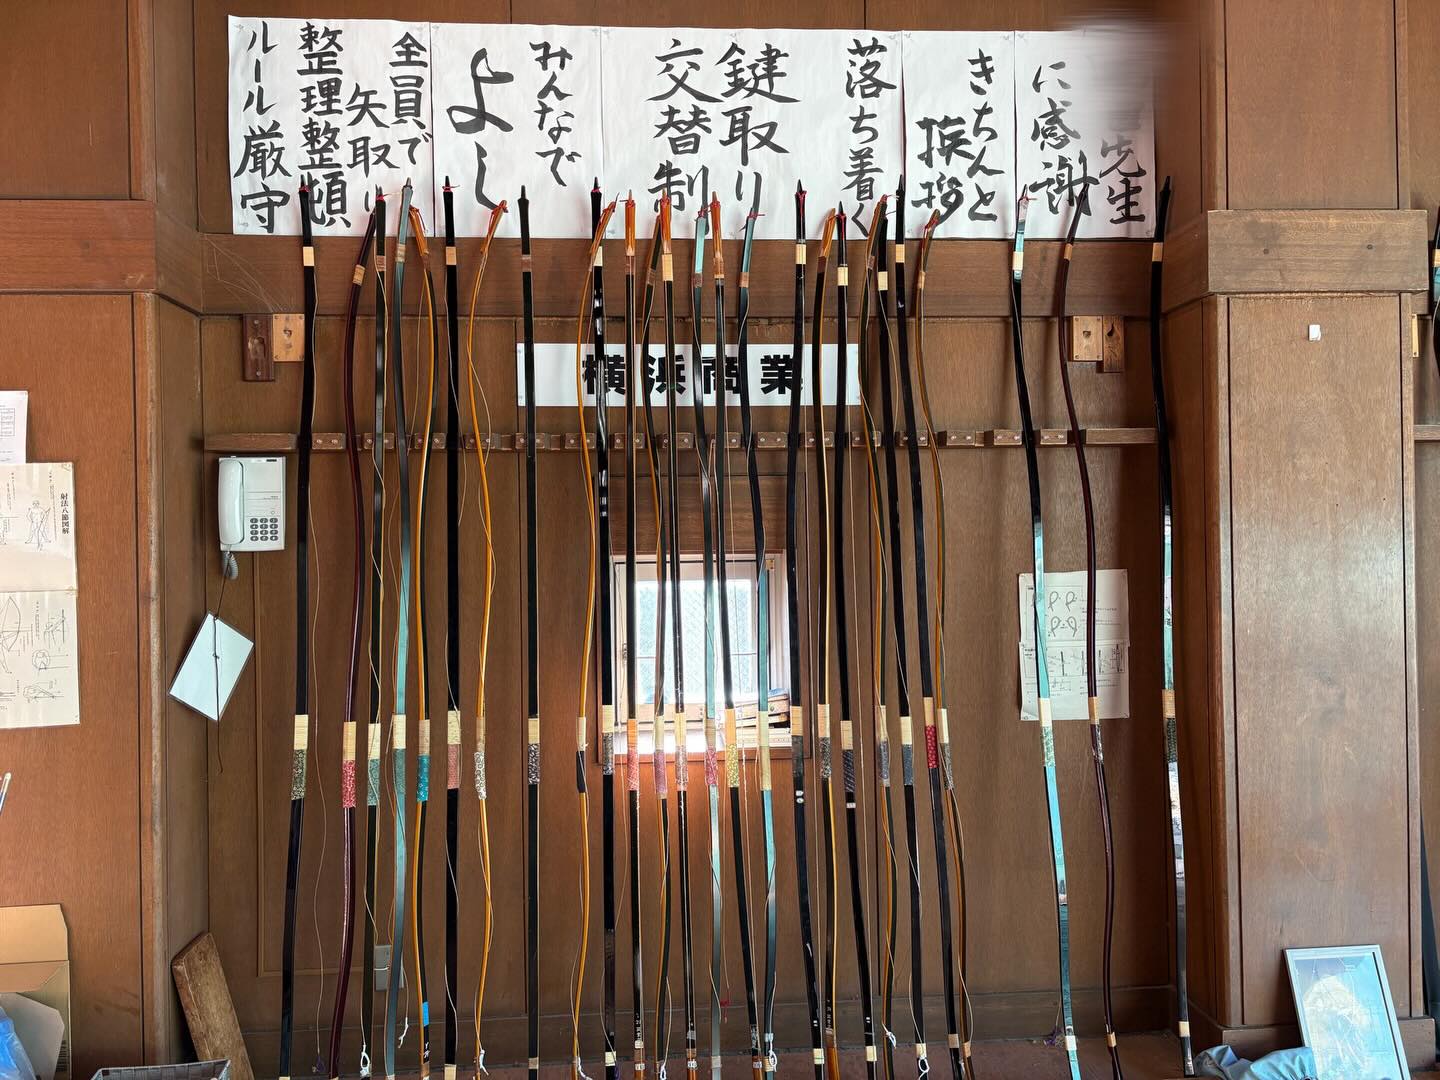 先生
に感謝
きちんと
挨拶
落ち着く
鍵取り
交替制
みんなで
よし
全員で
矢取り
整理整頓
ルール厳守
横浜商業
射法八節図解